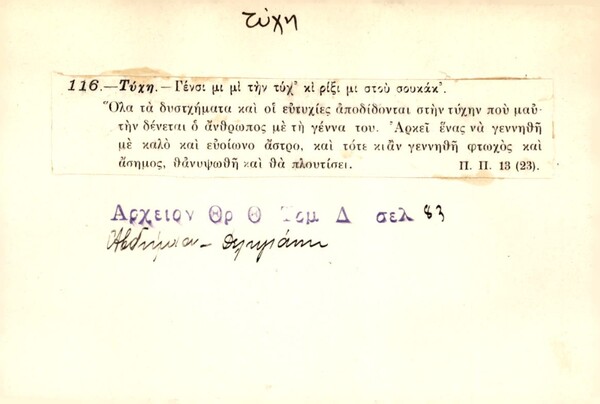 τύχη
116.—Τύχη.—Γένσι μι μὶ τὴν τύχ' κὶ ρίξι μι στοὺ σουκάκ'.
Ὅλα τὰ δυστχήματα καὶ οἱ εὐτυχίες ἀποδίδονται στὴν τύχην ποὺ μαὺ-
τὴν δένεται ὁ ἄνθρωπος μὲ τὴ γέννα του. Ἀρκεῖ ἕνας νὰ γεννηθῆ
μὲ καλὸ καὶ εὐοίωνο ἄστρο, καὶ τότε κιἂν γεννηθῆ φτωχὸς καὶ
ἄσημος, θἀνυψωθῆ καὶ θὰ πλουτίσει. Π. Π. 13 (23).
Αρχειον Θρ Θ Τομ Δ σελ 83